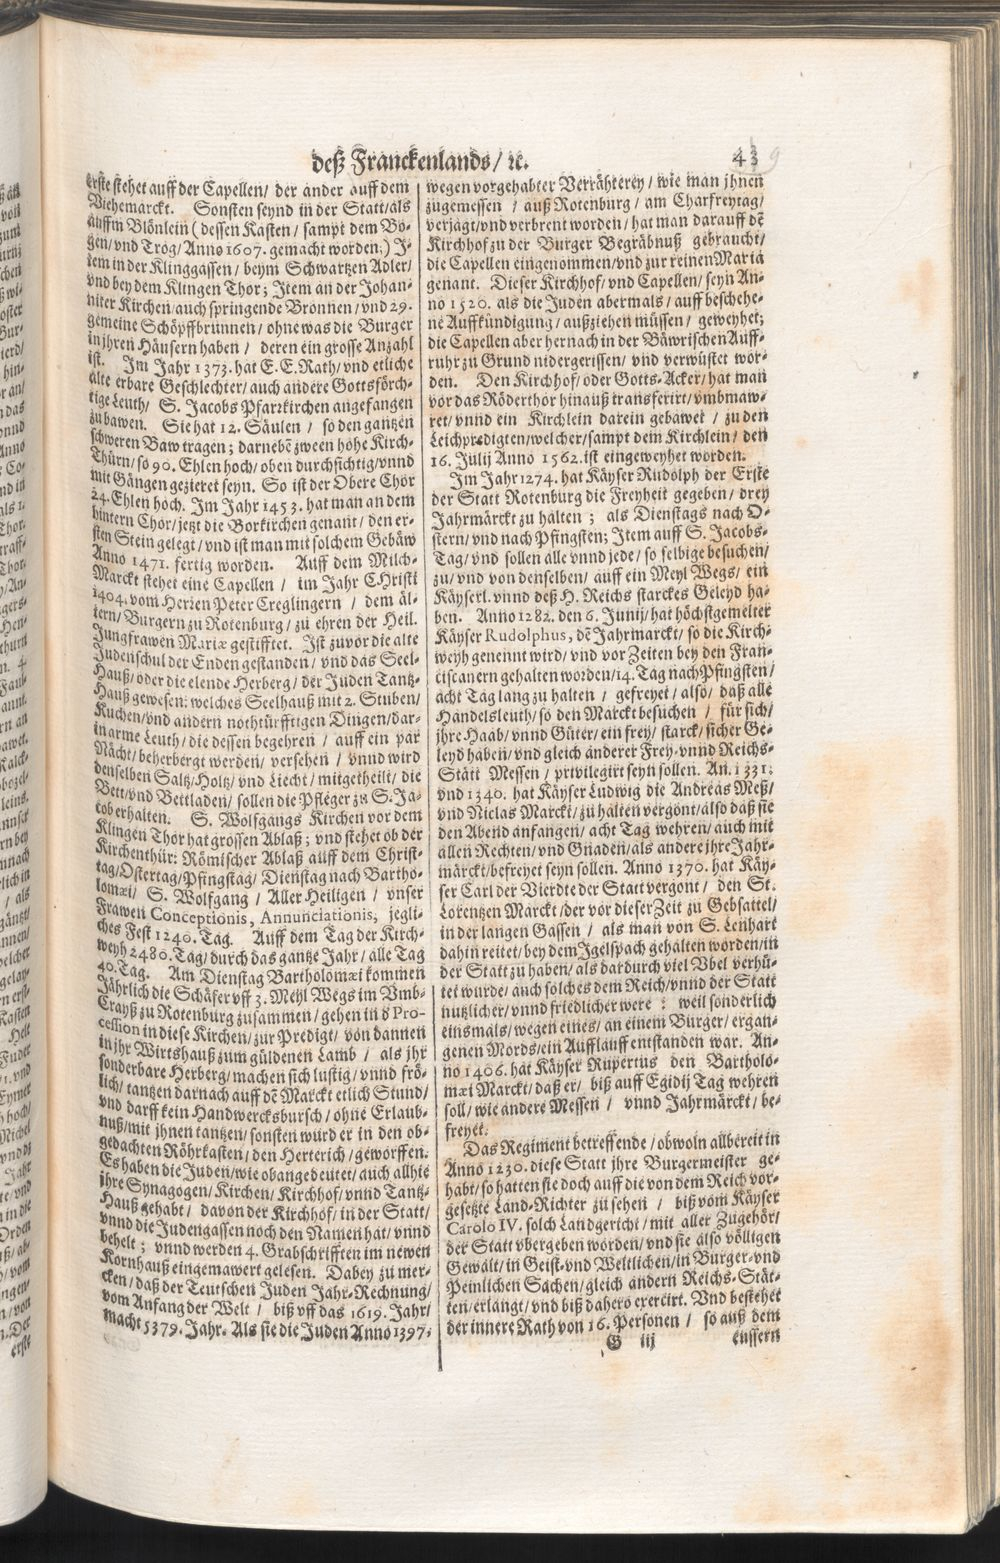 deß Franckenlands/ ꝛc. 43
erste stehet auff der Capellen/ der ander auff dem
Viehemarckt. Sonsten seynd in der Statt/als
auffm Blönlein (dessen Kasten / sampt dem Bo-
gen/vnd Trog/Anno 1607. gemacht worden;) J-
tem in der Klinggassen/ beym Schwartzen Adler/
vnd bey dem Klingen Thor; Jtem an der Johan-
niter Kirchen/auch springende Bronnen/vnd 29.
gemeine Schöpffbrunnen/ ohne was die Burger
in jhren Häusern haben / deren ein grosse Anzahl
ist. Jm Jahr 1373. hat E. E. Rath/ vnd etliche
alte erbare Geschlechter/auch andere Gottsförch-
tige Leuth/ S. Jacobs Pfarrkirchen angefangen
zu bawen. Sie hat 12. Säulen / so den gantzen
schweren Baw tragen; darnebẽ zween hohe Kirch-
Thürn/so 90. Ehlen hoch/oben durchsichtig/vnnd
mit Gängen gezieret seyn. So ist der Obere Chor
24. Ehlen hoch. Jm Jahr 1453. hat man an dem
hintern Chor/jetzt die Borkirchen genant/ den er-
sten Stein gelegt/vnd ist man mit solchem Gebäw
Anno 1471. fertig worden. Auff dem Milch-
Marckt stehet eine Capellen / im Jahr Christi
1404. vom Herren Peter Creglingern / dem äl-
tern/Burgern zu Rotenburg/ zu ehren der Heil.
Jungfrawen Mariæ gestifftet. Jst zuvor die alte
Judenschul der Enden gestanden/ vnd das Seel-
Hauß/oder die elende Herberg/ der Juden Tantz-
Hauß gewesen: welches Seelhauß mit 2. Stuben/
Kuchen/vnd andern nothtürfftigen Dingen/dar-
in arme Leuth/die dessen begehren / auff ein par
Nächt/beherbergt werden/ versehen / vnnd wird
denselben Saltz/Holtz/ vnd Liecht/ mitgetheilt/ die
Bett/vnd Bettladen/ sollen die Pfleger zu S. Ja-
cob erhalten. S. Wolfgangs Kirchen vor dem
Klingen Thor hat grossen Ablaß; vnd stehet ob der
Kirchenthür: Römischer Ablaß auff dem Christ-
tag/Ostertag/Pfingstag/ Dienstag nach Bartho-
lomæi/ S. Wolfgang / Aller Heiligen / vnser
Frawen Conceptionis, Annunciationis, jegli-
ches Fest 1240. Tag. Auff dem Tag der Kirch-
weyh 2480. Tag/durch das gantze Jahr/alle Tag
40. Tag. Am Dienstag Bartholomæi kommen
Jährlich die Schäfer vff 3. Meyl Wegs im Vmb-
Crayß zu Rotenburg zusammen/gehen in d' Pro-
cession in diese Kirchen/zur Predigt/ von dannen
in jhr Wirtshauß zum güldenen Lamb / als jhr
sonderbare Herberg/machen sich lustig/vnnd frö-
lich/ tantzen darnach auff dẽ Marckt etlich Stund/
vnd darff kein Handwercksbursch/ohne Erlaub-
nuß/mit jhnen tantzen/sonsten wurd er in den ob-
gedachten Röhrkasten/den Herterich/geworffen.
Es haben die Juden/wie obangedeutet/auch allhie
jhre Synagogen/Kirchen/Kirchhof/vnnd Tantz-
Hauß gehabt / davon der Kirchhof/in der Statt/
vnnd die Judengassen noch den Namen hat/vnnd
behelt; vnnd werden 4. Grabschrifften im newen
Kornhauß eingemawert gelesen. Dabey zu mer-
cken/daß der Teutschen Juden Jahr-Rechnung/
vom Anfang der Welt / biß vff das 1619. Jahr/
macht 5379. Jahr. Als sie die Juden Anno 1397.
wegen vorgehabter Verrähterey/wie man jhnen
zugemessen / auß Rotenburg / am Charfreytag/
verjagt/vnd verbrent worden/hat man darauff dẽ
Kirchhof zu der Burger Begräbnuß gebraucht/
die Capellen eingenommen/vnd zur reinen Maria
genant. Dieser Kirchhof/vnd Capellen/seyn An-
no 1520. als die Juden abermals / auff beschehe-
ne Auffkündigung/außziehen müssen / geweyhet;
die Capellen aber hernach in der Bäwrischen Auff-
ruhr zu Grund nidergerissen/ vnd verwüstet wor-
den. Den Kirchhof/oder Gotts-Acker/hat man
vor das Röderthor hinauß transferirt/vmbmaw-
ret/vnnd ein Kirchlein darein gebawet / zu den
Leichpredigten/welcher/sampt dem Kirchlein/ den
16. Julij Anno 1562. ist eingeweyhet worden.
Jm Jahr 1274. hat Käyser Rudolph der Erste
der Statt Rotenburg die Freyheit gegeben/ drey
Jahrmärckt zu halten ; als Dienstags nach O-
stern/vnd nach Pfingsten; Jtem auff S. Jacobs-
Tag/vnd sollen alle vnnd jede/ so selbige besuchen/
zu/vnd von denselben/ auff ein Meyl Wegs/ ein
Käyserl. vnnd deß H. Reichs starckes Geleyd ha-
ben. Anno 1282. den 6. Junij/hat höchstgemelter
Käyser Rudolphus, dẽ Jahrmarckt/ so die Kirch-
weyh genennt wird/vnd vor Zeiten bey den Fran-
ciscanern gehalten worden/14. Tag nach Pfingsten/
acht Tag lang zu halten / gefreyet / also/ daß alle
Handelsleuth/so den Marckt besuchen / für sich/
jhre Haab/vnnd Güter/ein frey/ starck/sicher Ge-
leyd haben/vnd gleich anderer Frey-vnnd Reichs-
Stätt Messen / privilegirt seyn sollen. An. 1331.
vnd 1340. hat Käyser Ludwig die Andreas Meß/
vnd Niclas Marckt/zu halten vergönt/also daß sie
den Abend anfangen/ acht Tag wehren/auch mit
allen Rechten/vnd Gnaden/als andere jhre Jahr-
märckt/befreyet seyn sollen. Anno 1370. hat Käy-
ser Carl der Vierdte der Statt vergont / den St.
Lorentzen Marckt/der vor dieser Zeit zu Gebsattel/
in der langen Gassen / als man von S. Lenhart
dahin reitet/bey dem Jgelspach gehalten worden/in
der Statt zu haben/als dardurch viel Vbel verhü-
tet wurde/auch solches dem Reich/vnnd der Statt
nutzlicher/vnnd friedlicher were : weil sonderlich
einsmals/wegen eines/an einem Burger/ergan-
genen Mords/ein Aufflauff entstanden war. An-
no 1406. hat Käyser Rupertus den Bartholo-
mæi Marckt/daß er/ biß auff Egidij Tag wehren
soll/wie andere Messen / vnnd Jahrmärckt/be-
freyet.
Das Regiment betreffende/obwoln allbereit in
Anno 1230. diese Statt jhre Burgermeister ge-
habt/so hatten sie doch auff die von dem Reich vor-
gesetzte Land-Richter zu sehen / biß vom Käyser
Carolo IV. solch Landgericht/mit aller Zugehör/
der Statt vbergeben worden/vnd sie also völligen
Gewalt/in Geist-vnd Weltlichen/in Burger-vnd
Peinlichen Sachen/gleich andern Reichs-Stät-
ten/erlangt/vnd biß dahero exercirt. Vnd bestehet
der innere Rath von 16. Personen / so auß dem
G iij eussern